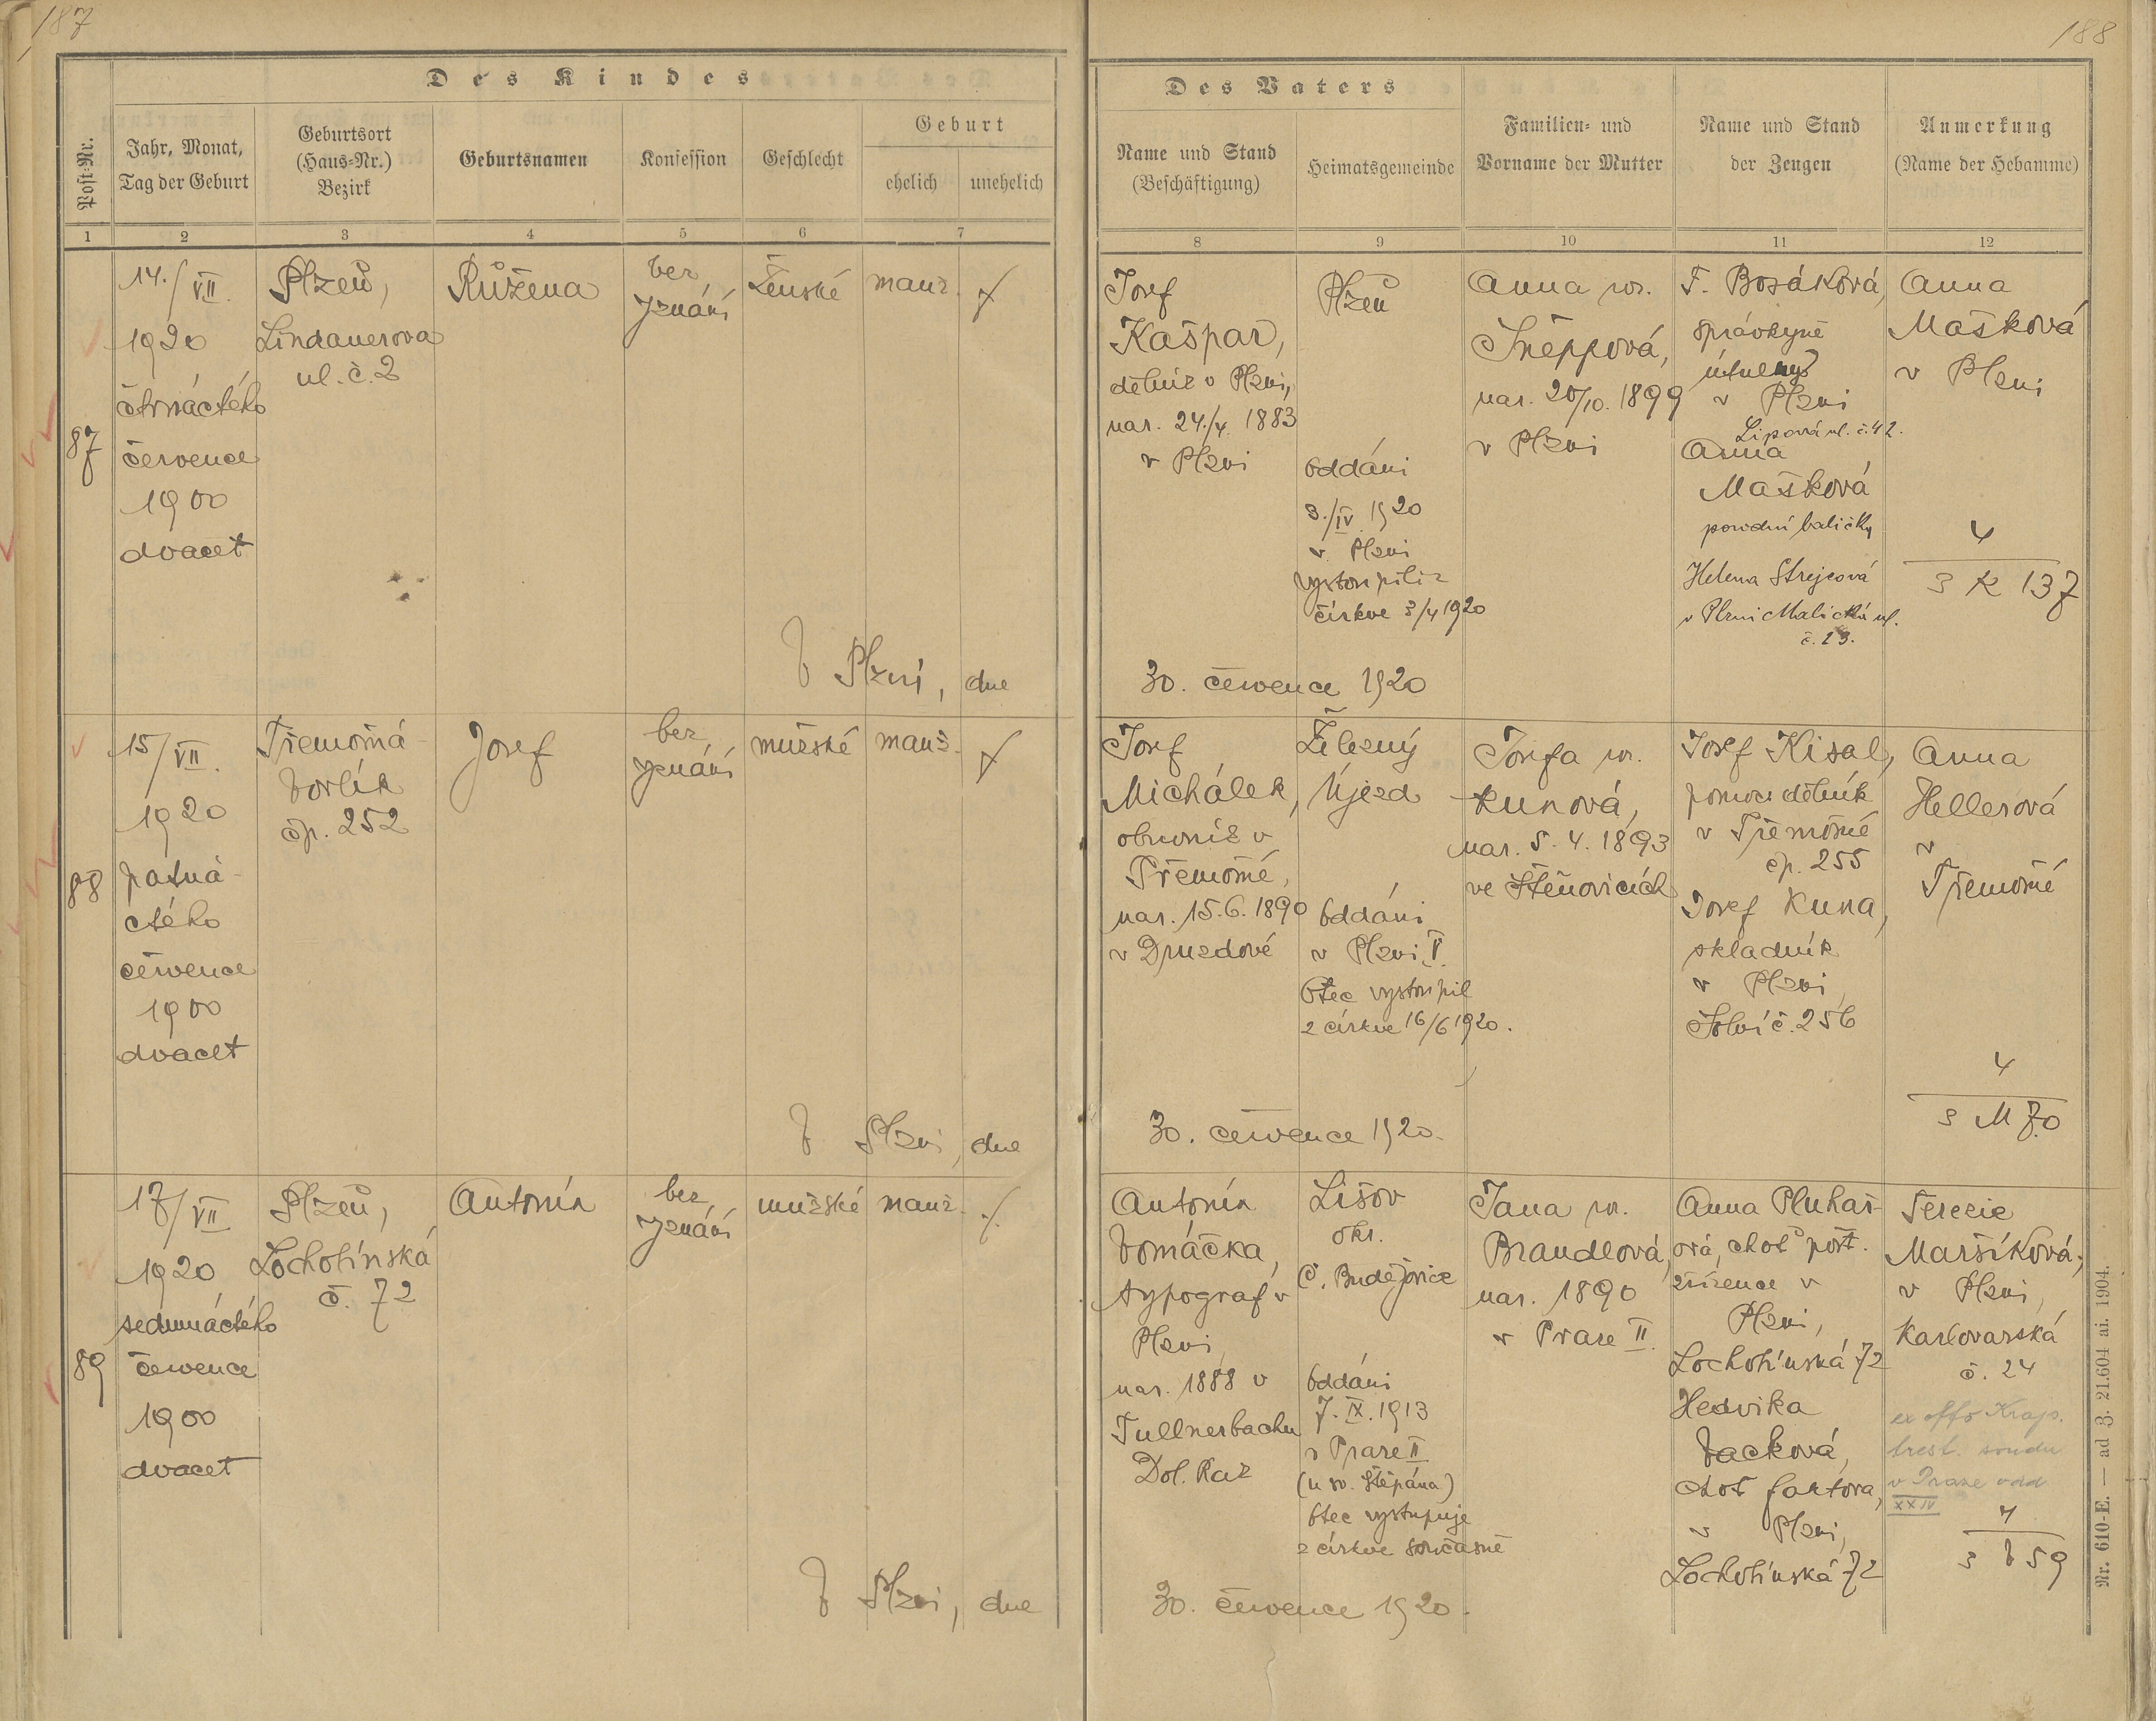 187
188
Des Kindes
Des Vaters
Post-Nr.
Jahr, Monat,
Tag der Geburt
Geburtsort
(Haus-Nr.)
Bezirk
Geburtsnamen
Konfession
Geschlecht
Geburt
ehelich
unehelich
Name und Stand
(Beschäftigung)
Heimatsgemeinde
Familien- und
Vorname der Mutter
Name und Stand
der Zeugen
Anmerkung
(Name der Hebamme)
1 2 3 4 5 6 7 8 9 10 11 12
87
14./VII.
1920
čtrnáctého
července
1900
dvacet
Plzeň,
Lindauerova
ul. č. 2
Růžena
bez
vyznání
ženské
manž.
Josef
Kašpar,
dělník v Plzni,
nar. 24./4. 1883
v Plzni
Plzeň
Oddáni
3./IV 1920
v Plzni
vystoupili z
církve 3/4 1920
Anna roz.
Šnéppová,
nar. 20/10. 1899
v Plzni
F. Bosáková,
správkyně
útulny
v Plzni
Lipová ul. č. 42.
Anna
Mašková
porodní babičky
Helena Strejcová
v Plzni Malická ul.
č. 23.
Anna
Mašková
v Plzni
4
3 K 137
V Plzni, dne
30. července 1920
88
15/VII.
1920
patná-
ctého
července
1900
dvacet
Třemošná-
Vorlík
čp. 252
Josef
bez
vyznání
mužské
manž.
Josef
Michálek,
obuvník v
Třemošné,
nar. 15.6. 1890
v Druzdové
Železný
Újezd
Oddáni
v Plzni II.
Otec vystoupil
z církve 16/6 1920.
Josefa roz.
Kunová,
nar. 5. 4. 1893
ve Štěnovicích
Josef Kisal,
pomoc. dělník
v Třemošné
čp. 255
Josef Kuna,
skladník
v Plzni,
č. 256
Anna
Hellerová
v
Třemošné
4
3 M 70
V Plzni, dne
30. července 1920.
89
17/VII
1920
sedmnáctého
července
1900
dvacet
Plzeň,
Lochotínská
č. 72
Antonín
bez
vyznání
mužské
manž.
Antonín
Vomáčka,
typograf v
Plzni,
nar. 1888 v
Tullnerbachu
Dol. Rak
Lišov
okr.
Č. Budějovice
Oddáni
7. IX. 1913
v Praze II
(u sv. Štěpána)
Otec vystupuje
z církve současně
Jana roz.
Brandlová,
nar. 1890
v Praze II.
Anna Pluhař-
ová, choť pošt.
zřízence v
Plzni,
Lochotínská 72
Hedvika
Vacková,
choť faktora,
v Plzni,
Lochotínská 72
Terezie
Maršíková,
v Plzni,
Karlovarská
č. 24
ex offo Kraj.
trest. soudu
v Praze odd
XXIV
4
3 V 59
V Plzni, dne
30. července 1920.
Nr. 610-E. — ad Z. 21.604 ai. 1904.